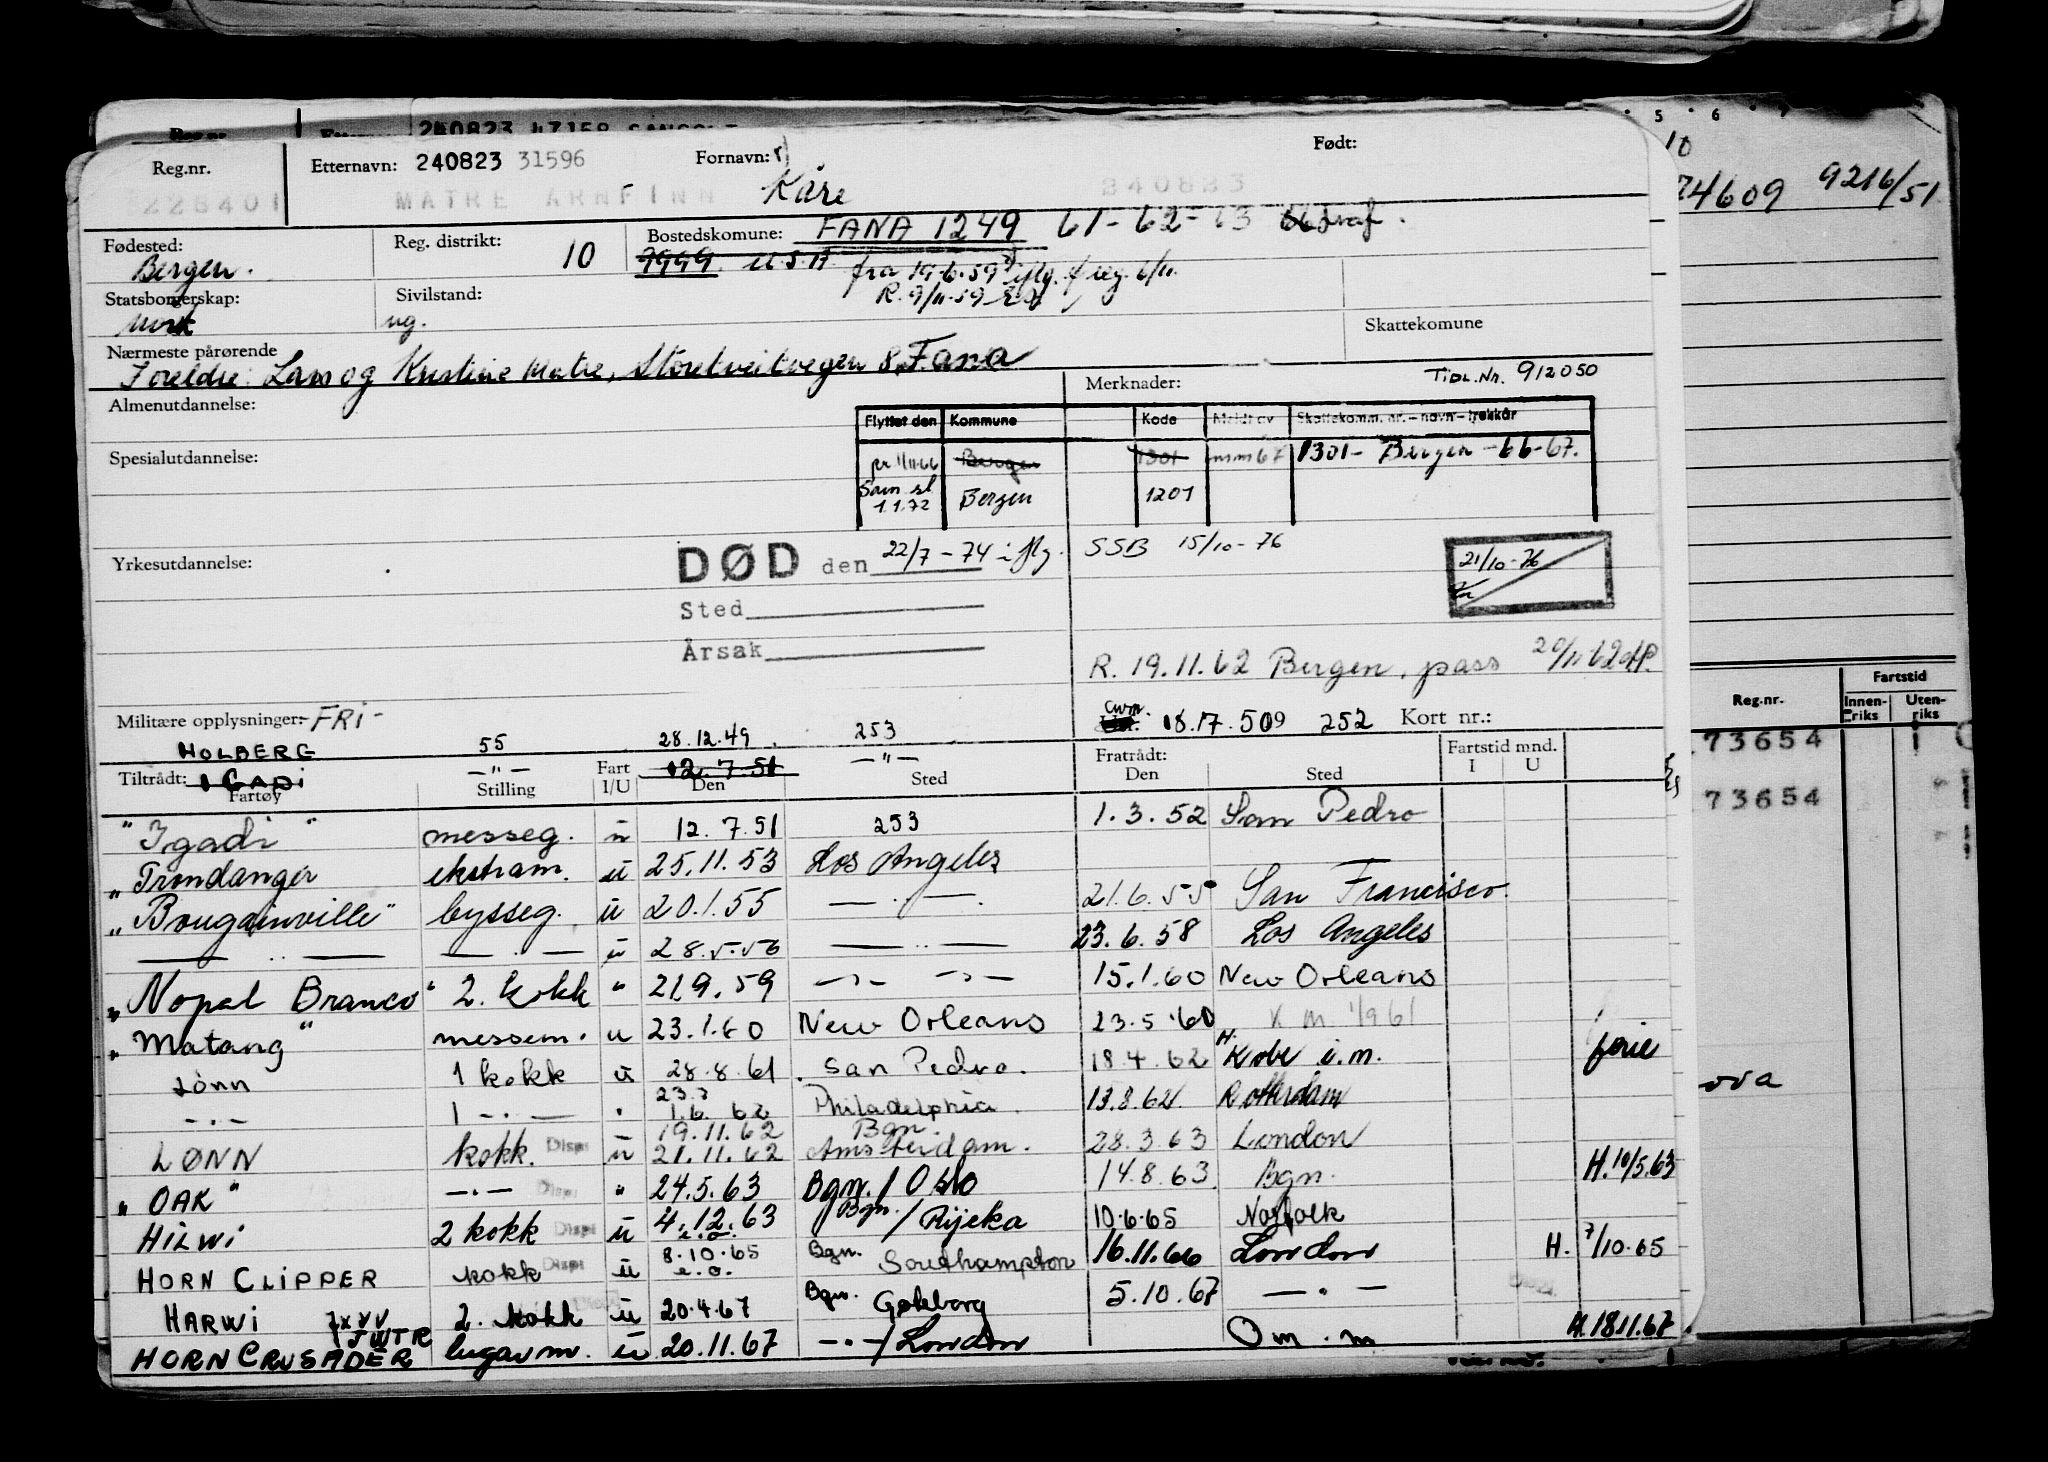 5 6
10
74609 9216/51
240823 47158
Reg.nr. Etternavn: 240823 31596 Fornavn: Født:
228401 MATRE ARNFINN Kåre 240823
Fødested: Reg. distrikt: 10 Bostedskomune: FANA 1249 61-62-63
Bergen. 9999 U.S.A fra 19.6.59 iflg. f reg. 6/11.
Statsborgerskap: Sivilstand: R. 9/11-59
Norsk ug. Skattekomune
Nærmeste pårørende
Foreldre: Lars og Kristine Matre, Storetveitvegen 8, Fana
Almenutdannelse: Merknader: TIDL.NR. 912050
Flyttet den Kommune Kode Meldt av Skattekomm. nr. – navn – trekkår
Spesialutdannelse: pr 1/11-66 Bergen 1301 mm 67 1301 - Bergen - 66-67.
Sam. sl 1.1.72 Bergen 1201
Yrkesutdannelse: DØD den 22/7-74 iflg. SSB 15/10-76 21/10-76
Sted
Årsak
R. 19.11.62 Bergen, pass 20/11 62
Militære opplysninger: -FRI-
18.17.509 252 Kort nr.:
HOLBERG 55 28.12.49. 253
Tiltrådt: IGADI -"- Fart 12.7.51 -"- Fratrådt: Fartstid mnd.
Fartøy Stilling I/U Den Sted Den Sted I U
"Igadi" messeg. u 12.7.51 253 1.3.52 San Pedro
"Trondanger ekstram. u 25.11.53 Los Angeles
"Bougainville" bysseg. u 20.1.55 — . — . 21.6.55 San Francisco.
— .. — — . — u 28.5.56 — .. — 23.6.58 Los Angeles
"Nopal Branco" 2. kokk " 21.9.59 -"- -"- 15.1.60 New Orleans
"Matang" messem. u 23.1.60 New Orleans 23.5.60 K.M. 1/961
Lønn 1 kokk u 28.8.61 San Pedro. 18.4.62 H. Kobe i.m. ferie
-.- 1 -.- " 23.? 1.6.62 Philadelphia. 13.8.62 Rotterdam
LØNN kokk. Disp u 19.11.62 21.11.62 Bgn. Amsterdam. 28.3.63 London
"OAK" -.- Disp " 24.5.63 Bgn./Oslo 14.8.63 Bgn. H. 10/5.63
HILWI 2 kokk Disp u 4.12.63 e.o. Bgn./Rijeka 10.6.65 Norfolk
HORN CLIPPER kokk Disp u 8.10.65 e.o. Bgn. Southampton 16.11.66 London H. 7/10.65
HARWI 2. kokk u 20.4.67 Bgn. Gøteborg 5.10.67 — " —
HORN CRUSADER JWTR lugarm. u 20.11.67 -.-/London Om.m H.18.11.67
Reg.nr. Fartstid
Innenriks Utenriks
73654
73654